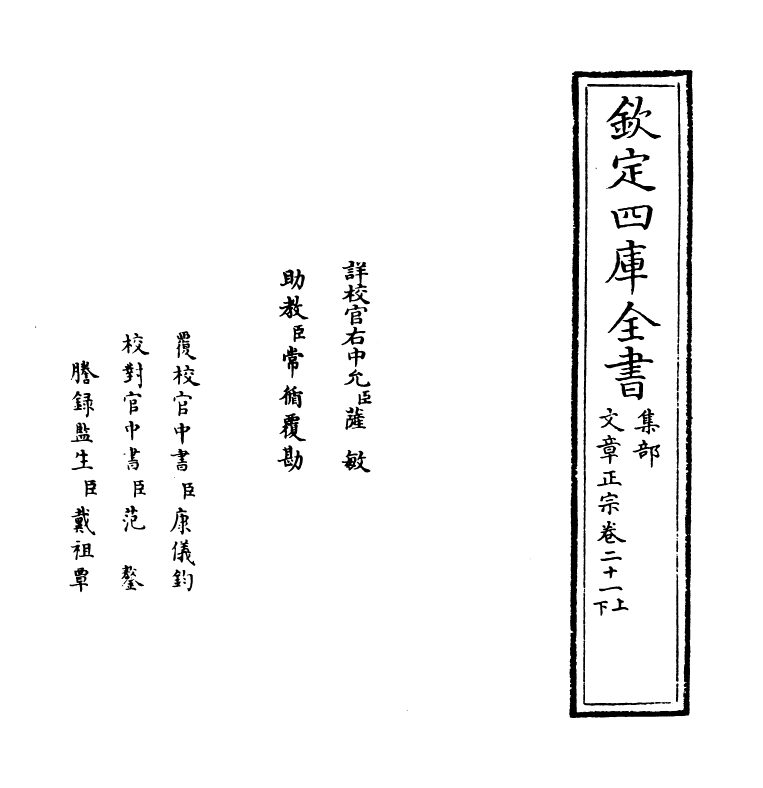 欽定四庫全書
集部
文章正宗卷二十一上下
詳校官右中允臣薩敏
助教臣常循覆勘
覆校官中書臣康儀鈞
校對官中書臣范鏊
謄録監生臣戴祖覃